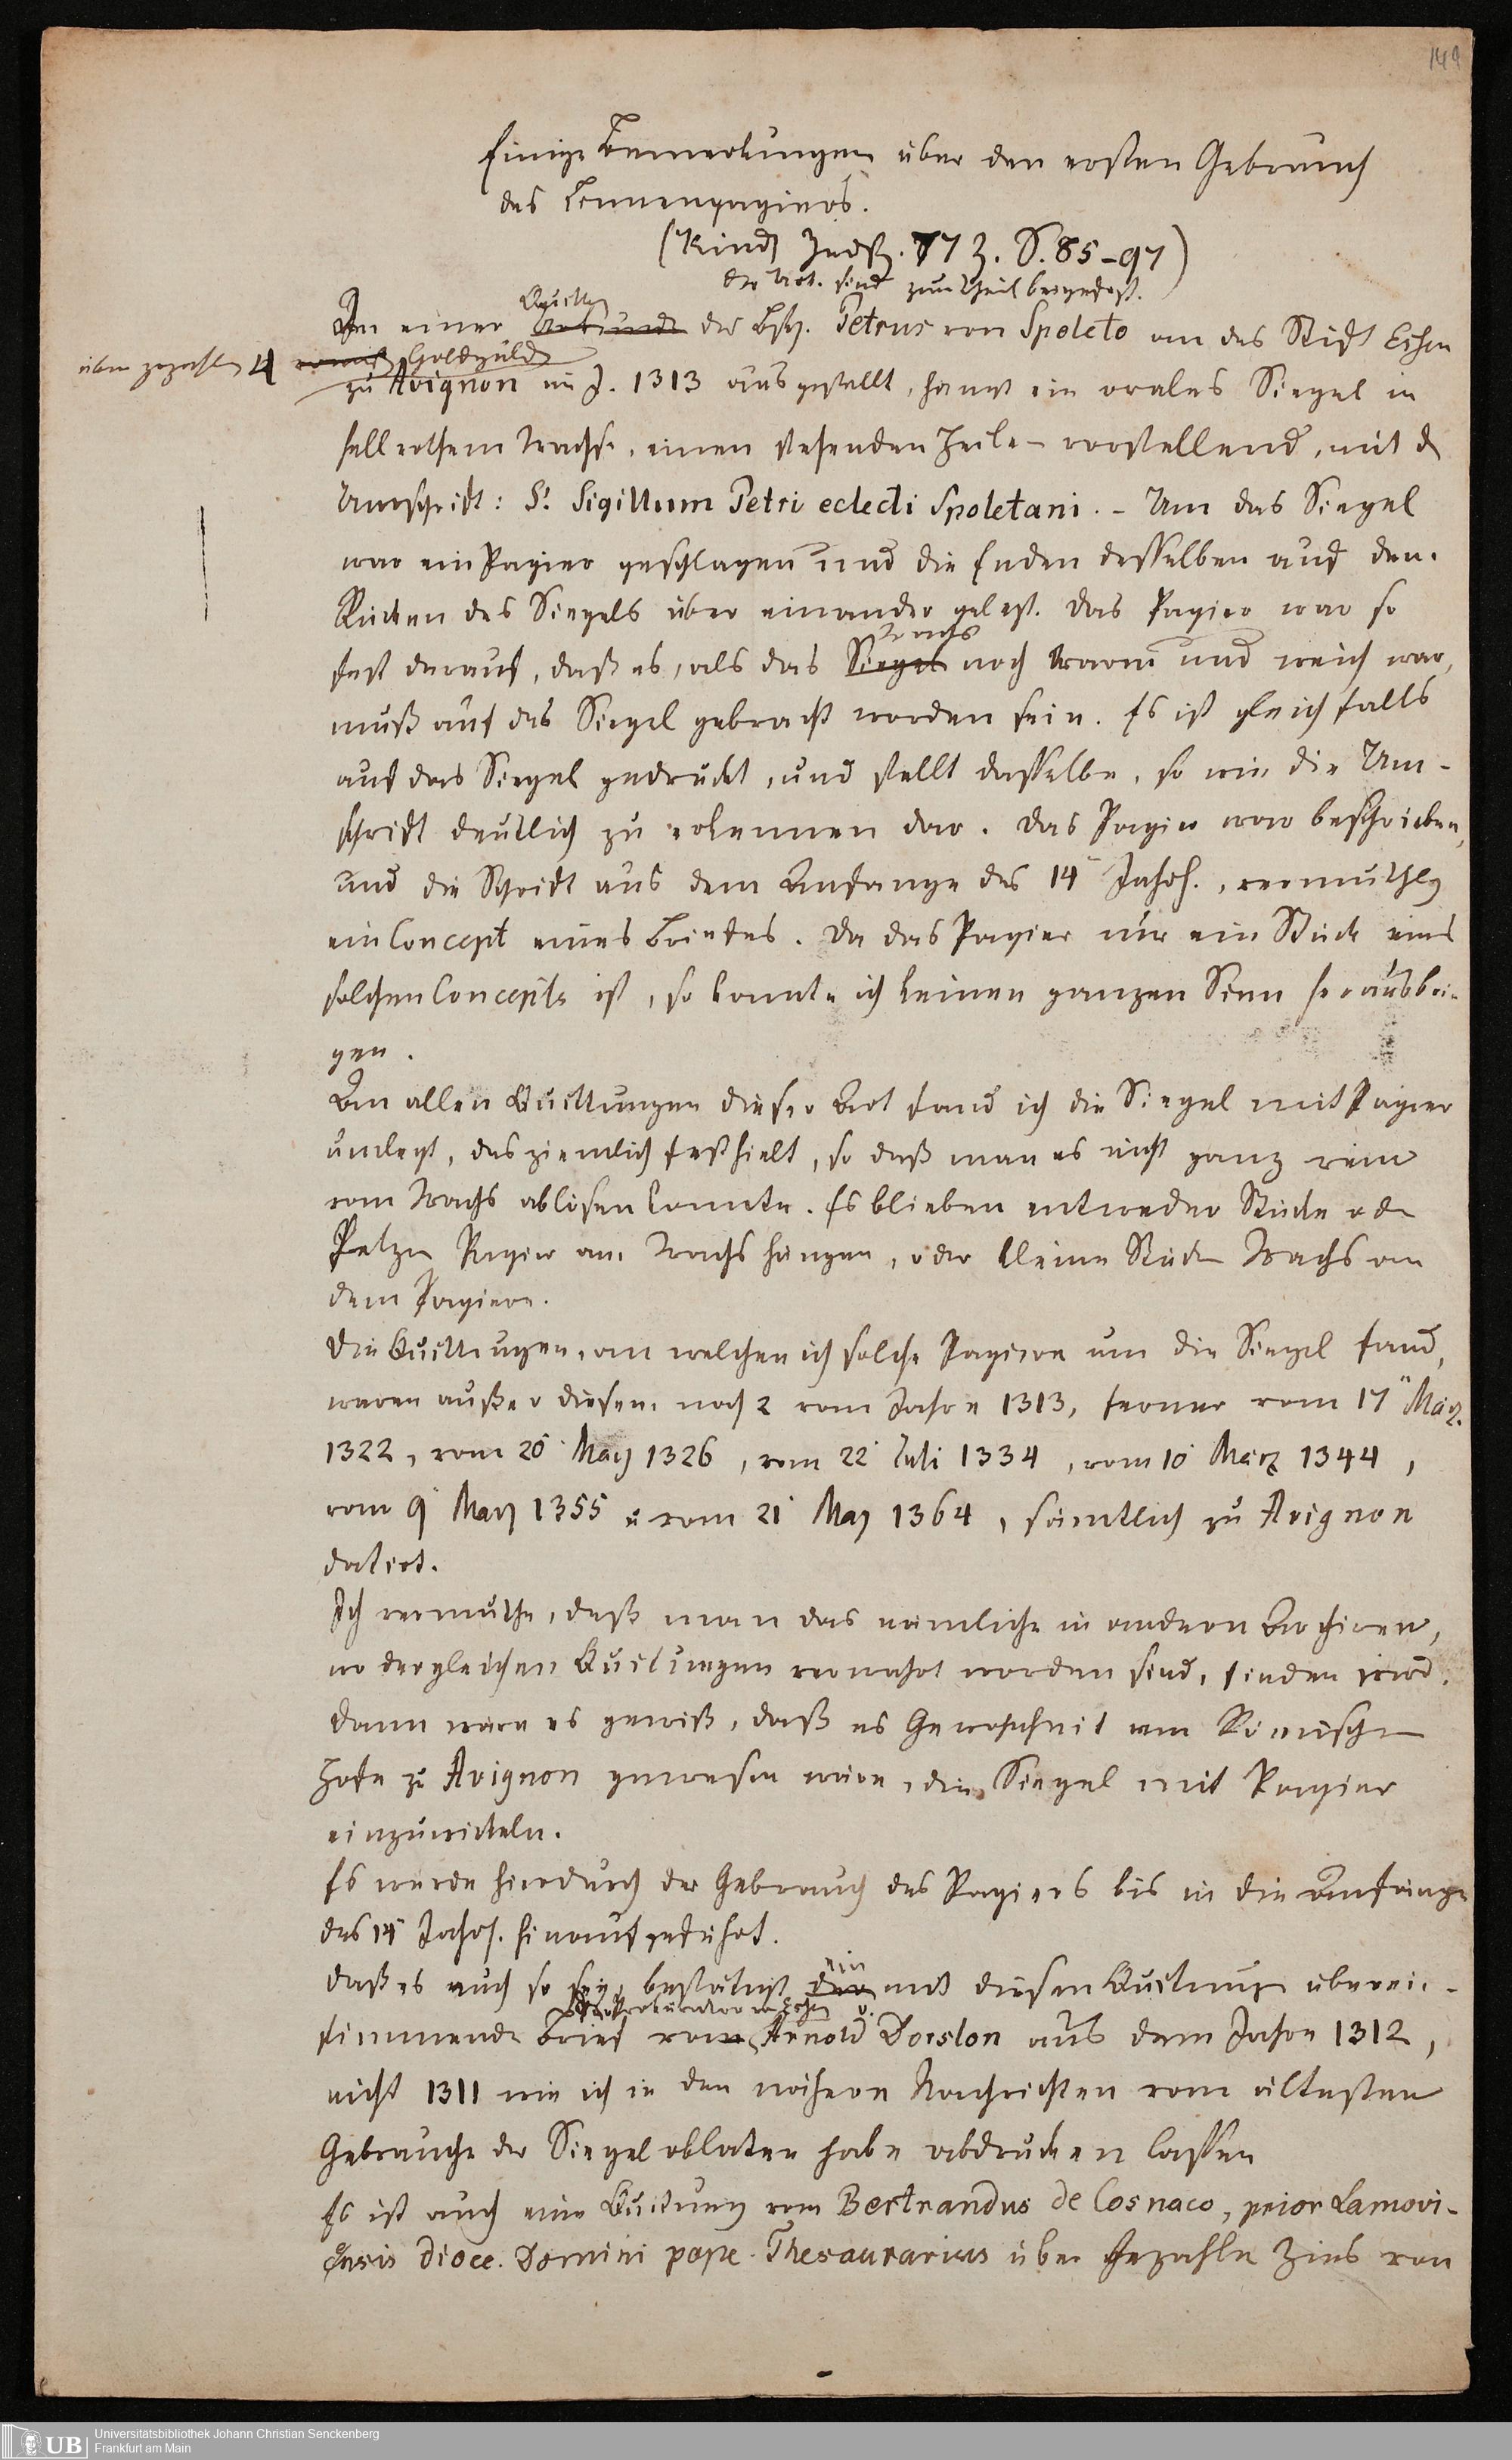 149
Einige Bemerkungen über den ersten Gebrauch
des Linnenpapiers.
(Kindl. Hndsch. 173. S. 85-97)
der Art. sind zum Theil beigedrst.
Quittg
An einer Urkunde des Bsch. Petrus von Spoleto an das Stift Essen
über gezahlte 4 Goldguld
zu Avignon im J. 1313 ausgestellt, hangt ein ovales Siegel in
hellrothem Wachse, einen stehenden Heilen vorstellend, mit d
Umschrift: S! Sigillum Petri eclecti Spoletani. – Um das Siegel
war ein Papier geschlagen und die Enden desselben auf dem
Rücken des Siegels über einander gelegt. Das Papier war so
Wachs
fest darauf, daß es, als das Siegel noch warm und weich war,
muß auf das Siegel gebracht worden sein. Es ist gleichfalls
auf das Siegel gedruckt, und stellt dasselbe, so wie die Um-
schrift deutlich zu erkennen dar. Das Papier war beschrieben,
und die Schrift aus dem Anfange des 14 Jahrh., vermuthlg
ein Concept eines Briefes. Da das Papier nur ein Stück eines
solchen Concepts ist, so konnte ich keinen ganzen Sinn herausbrin-
gen.
An allen Quittungen dieser Art fand ich die Siegel mit Papier
umlegt, das ziemlich festhielt, so daß man es nicht ganz rein
vom Wachs ablösen konnte. Es blieben entweder Stücke oder
Fetzen Papier am Wachs hängen, oder kleine Stücke Wachs an
dem Papiere.
Die Quittungen, an welchen ich solche Papiere um die Siegel fand,
waren außer diesem noch 2 vom Jahre 1313, ferner vom 17 März
1322, vom 20 May 1326, vom 22 Juli 1334, vom 10 März 1344,
vom 9 May 1355 u vom 21 May 1364, sämtlich zu Avignon
datirt.
Ich vermuthe, daß man das nämliche in andern Archiven,
wo dergleichen Quitungen verwahrt worden sind, finden wird.
Dann wäre es gewiß, daß es Gewohnheit am Römischen
Hofe zu Avignon gewesen wäre, die Siegel mit Papier
einzuwickeln.
Es würde hierdurch der Gebrauch des Papiers bis in die Anfänge
des 14 Jahrh. hinaufgeführt.
ein
Daß es auch so sey, bestätigt der mit diesen Quitunge überein-
Prokurator
stimmende Brief vom Arnold Dorslon aus dem Jahre 1312,
nicht 1311 wie ich in den nähern Nachrichten vom ältesten
Gebrauche der Siegeloblaten habe abdrucken lassen
Es ist auch eine Quitung vom Bertrandus de Cosnaco, prior Lamovi-
censis dioce. Domini pape Thesaurarius über gezahlte Zins von
UB Universitätsbibliothek Johann Christian Senckenberg
Frankfurt am Main